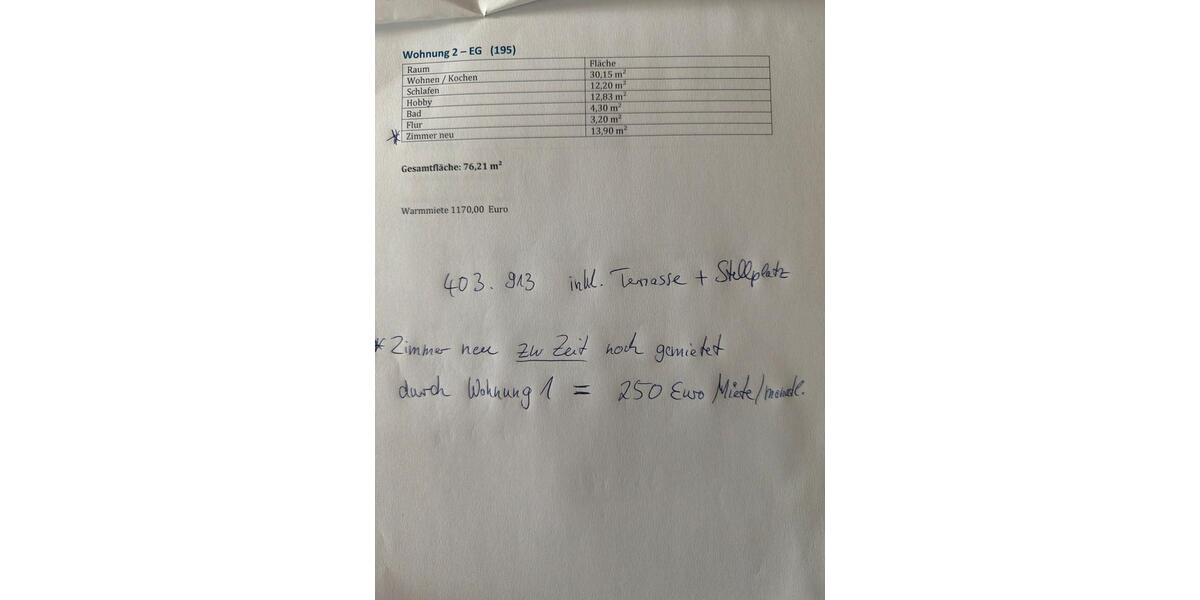 Wohnung 2 – EG (195)
Raum Fläche
Wohnen / Kochen 30,15 m²
Schlafen 12,20 m²
Hobby 12,83 m²
Bad 4,30 m²
Flur 3,20 m²
* Zimmer neu 13,90 m²
Gesamtfläche: 76,21 m²
Warmmiete 1170,00 Euro
403.913 inkl. Terrasse + Stellplatz
* Zimmer neu zur Zeit noch gemietet
durch Wohnung 1 = 250 Euro Miete/monatl.